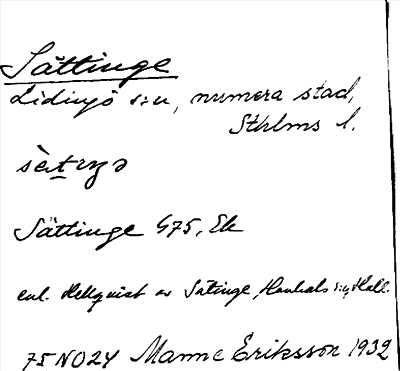 Sättinge
Lidingö sn, numera stad,
Sthlms l.
Sättinge G75, Ek
enl. Hellquist av Sätinge, Hanhals s:n, Hall.
75NO24 Manne Eriksson 1932